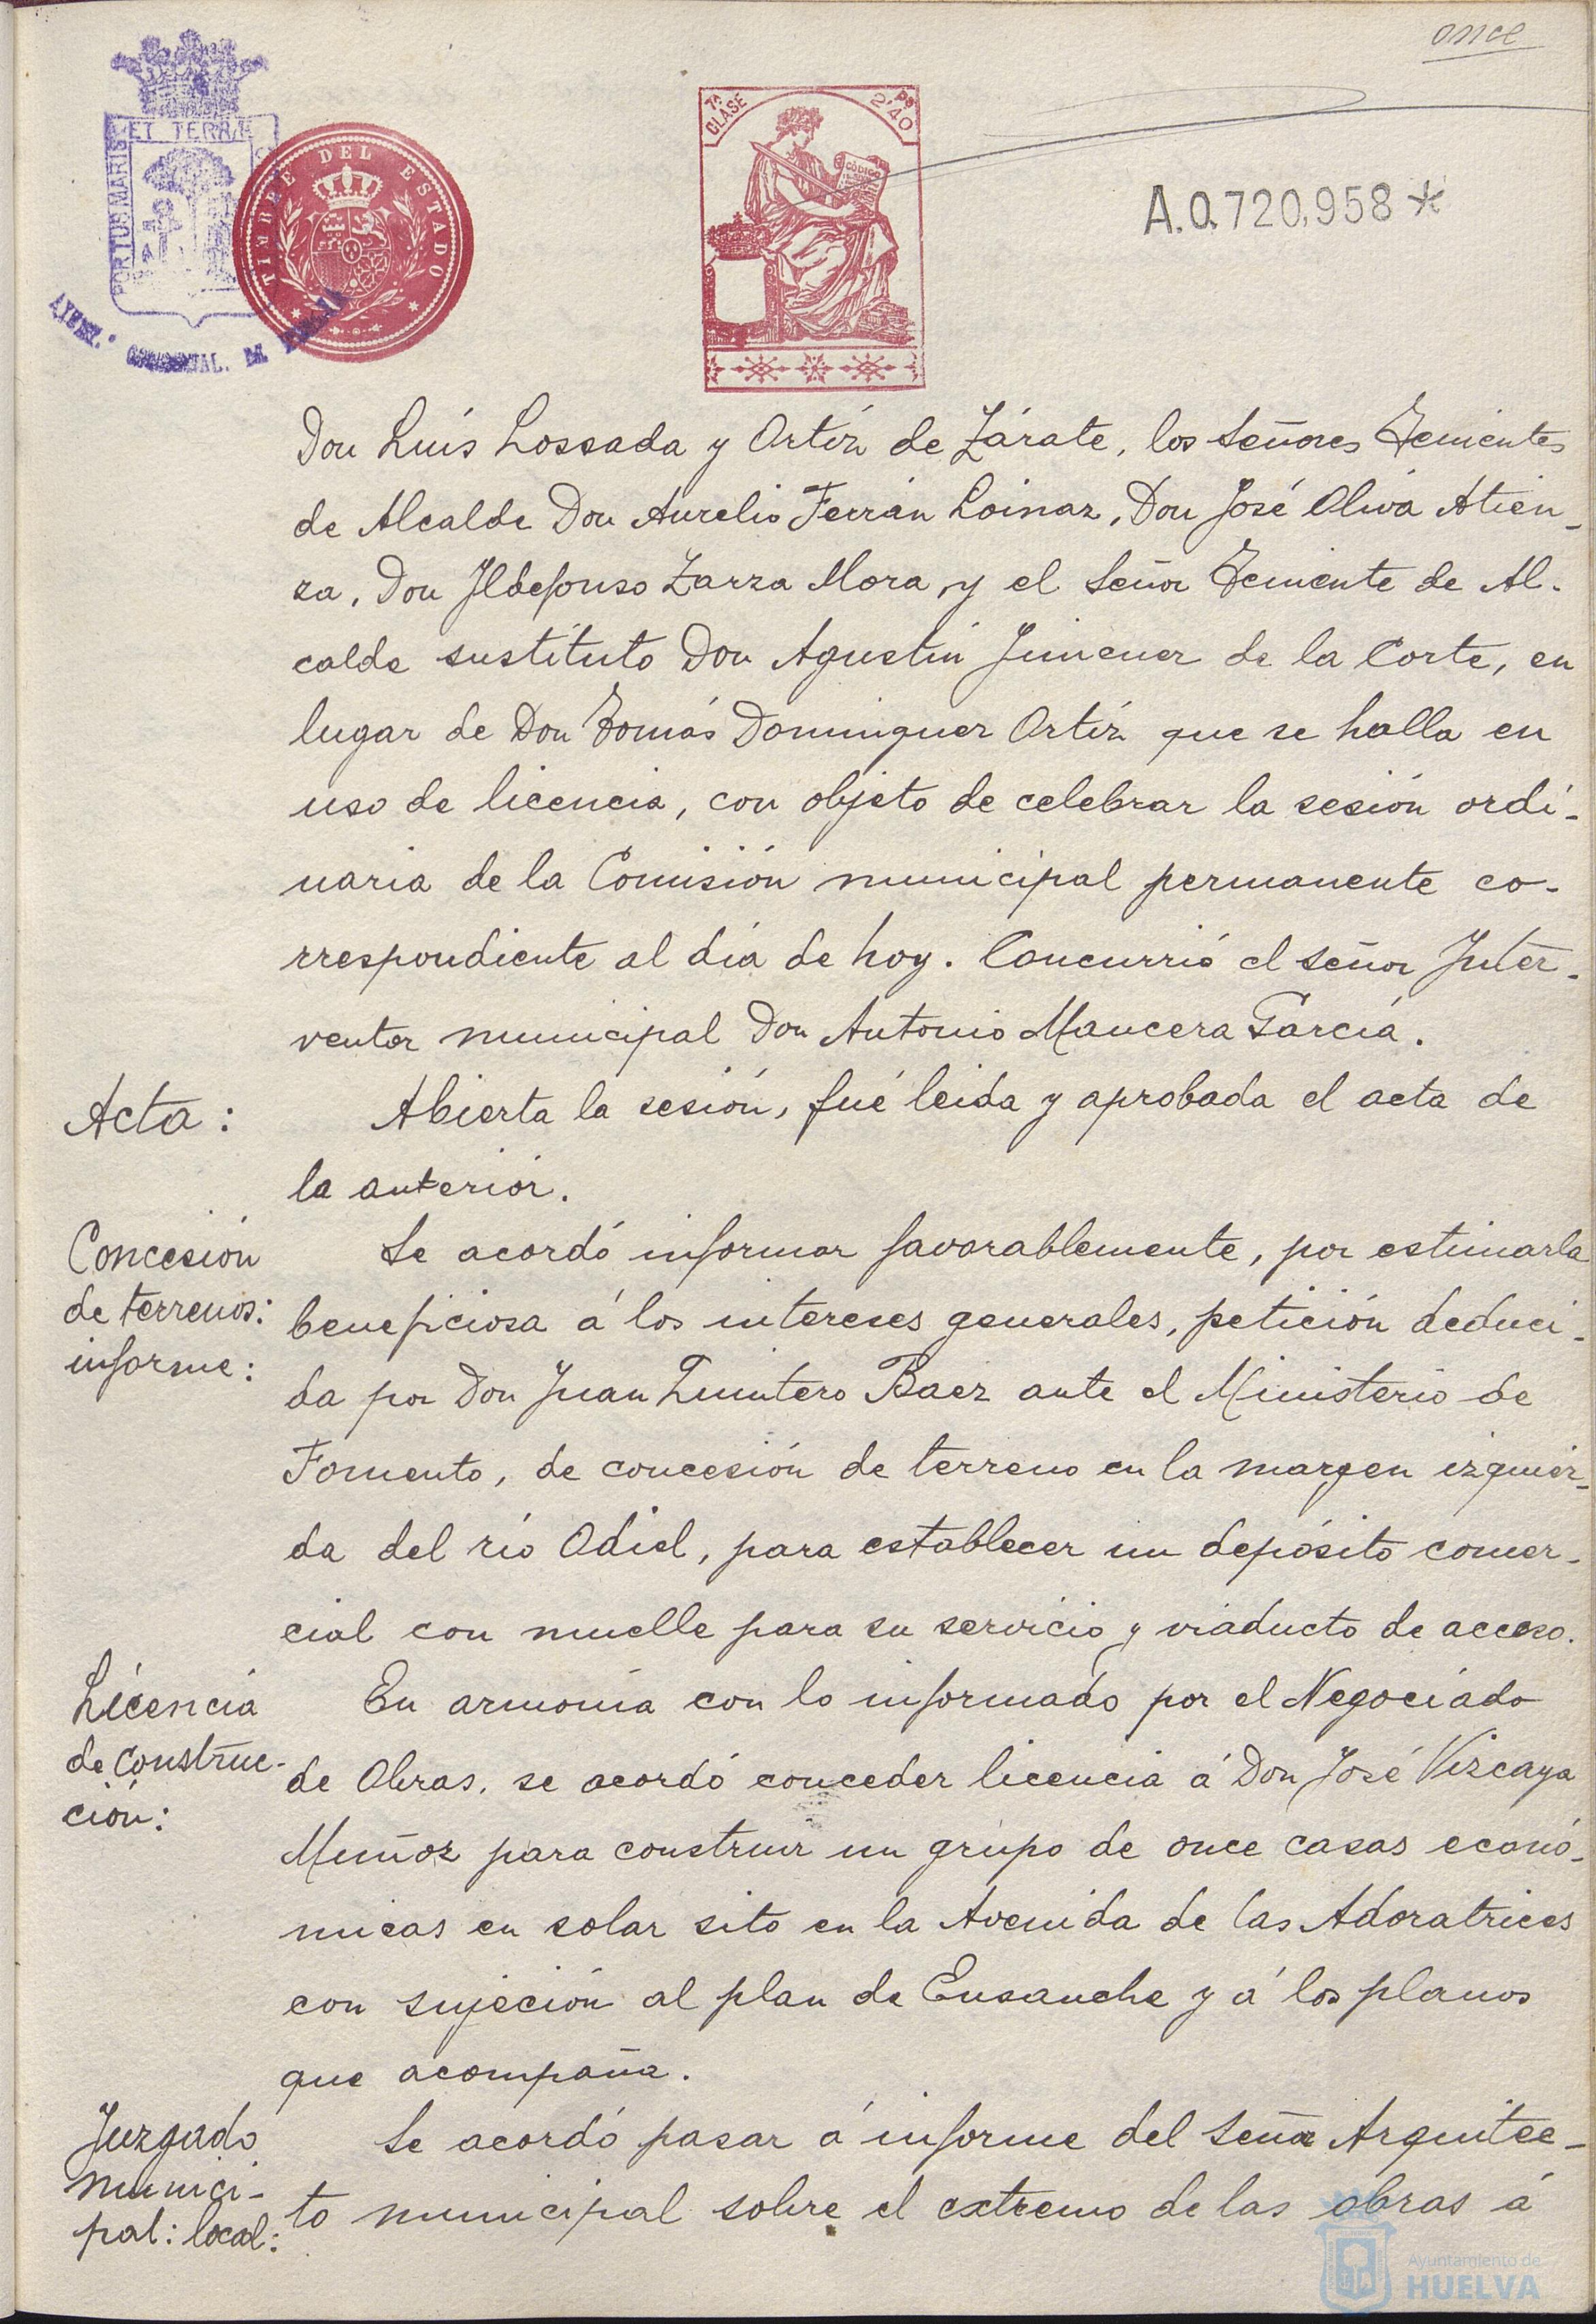 once
ET TERRAE
PORTUS MARIS
TIMBRE DEL ESTADO
7ª CLASE
2'40
CÓDIGO
A.0.720,958*
Don Luís Lossada y Ortíz de Zárate, los Señores Tenientes
de Alcalde Don Aurelio Ferrán Loinaz, Don José Oliva Atien-
za, Don Ildefonso Zarza Mora, y el Señor Teniente de Al-
calde sustituto Don Agustín Jimenez de la Corte, en
lugar de Don Tomás Dominguez Ortíz que se halla en
uso de licencia, con objeto de celebrar la sesión ordi-
naria de la Comisión municipal permanente co-
rrespondiente al día de hoy. Concurrió el señor Inter-
ventor municipal Don Antonio Mancera García.
Acta:
Abierta la sesión, fué leida y aprobada el acta de
la anterior.
Concesión
de terrenos:
informe:
Se acordó informar favorablemente, por estimarla
beneficiosa á los intereses generales, petición deduci-
da por Don Juan Quintero Baez ante el Ministerio de
Fomento, de concesión de terreno en la margen izquier-
da del río Odiel, para establecer un depósito comer-
cial con muelle para su servicio y viaducto de acceso.
Licencia
de construc-
ción:
En armonía con lo informado por el Negociado
de Obras, se acordó conceder licencia á Don José Vizcaya
Muñoz para construir un grupo de once casas econó-
micas en solar sito en la Avenida de las Adoratrices
con sujeción al plan de Ensanche y á los planos
que acompaña.
Juzgado
munici-
pal: local:
Se acordó pasar á informe del Señor Arquitec-
to municipal sobre el extremo de las obras á
Ayuntamiento de
HUELVA